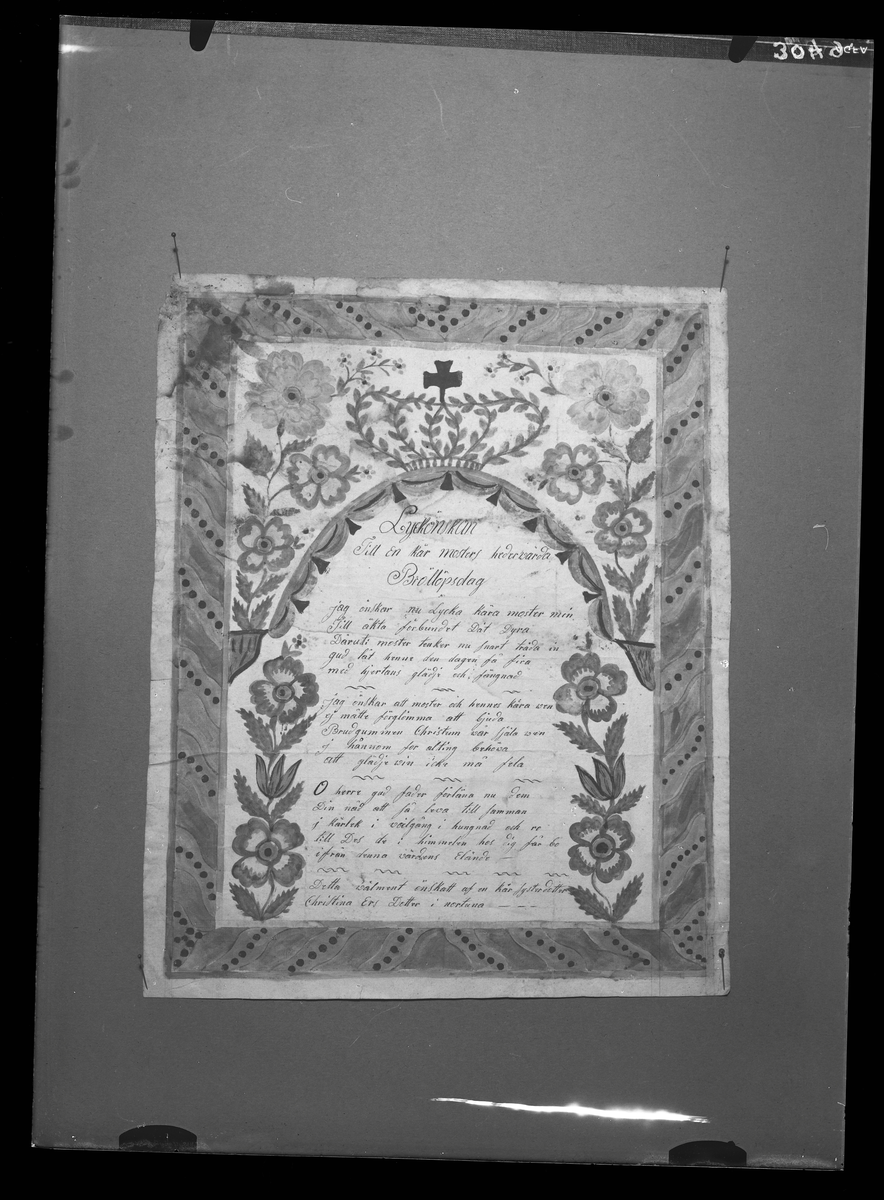 3049 GFA
Lyckönskan
Till En kär mosters hedervärda
Bröllöpsdag
jag önskar nu Lycka kära moster min
Till äkta förbundet Dät Dyra
Däruti moster tenker nu snart träda in
gud låt henne den dagen få fira
med hjertans glädje och fängnad
jag önskar att moster och hennes kära wen
ej måtte förglömma att bjuda
Brudgummen Christum vår själa wen
ty hännom för alting behöva
att glädje win icke må fela
O herre gud fader förläna nu dem
Din nåd att få leva till samman
j kärlek i välgång i hungnad och ro
till Des de i himmelen hos dig får bo
ifrån denna värdens Elände
Detta välment önskatt af en kär systerdotter
Christina Ers Dotter i nortuna